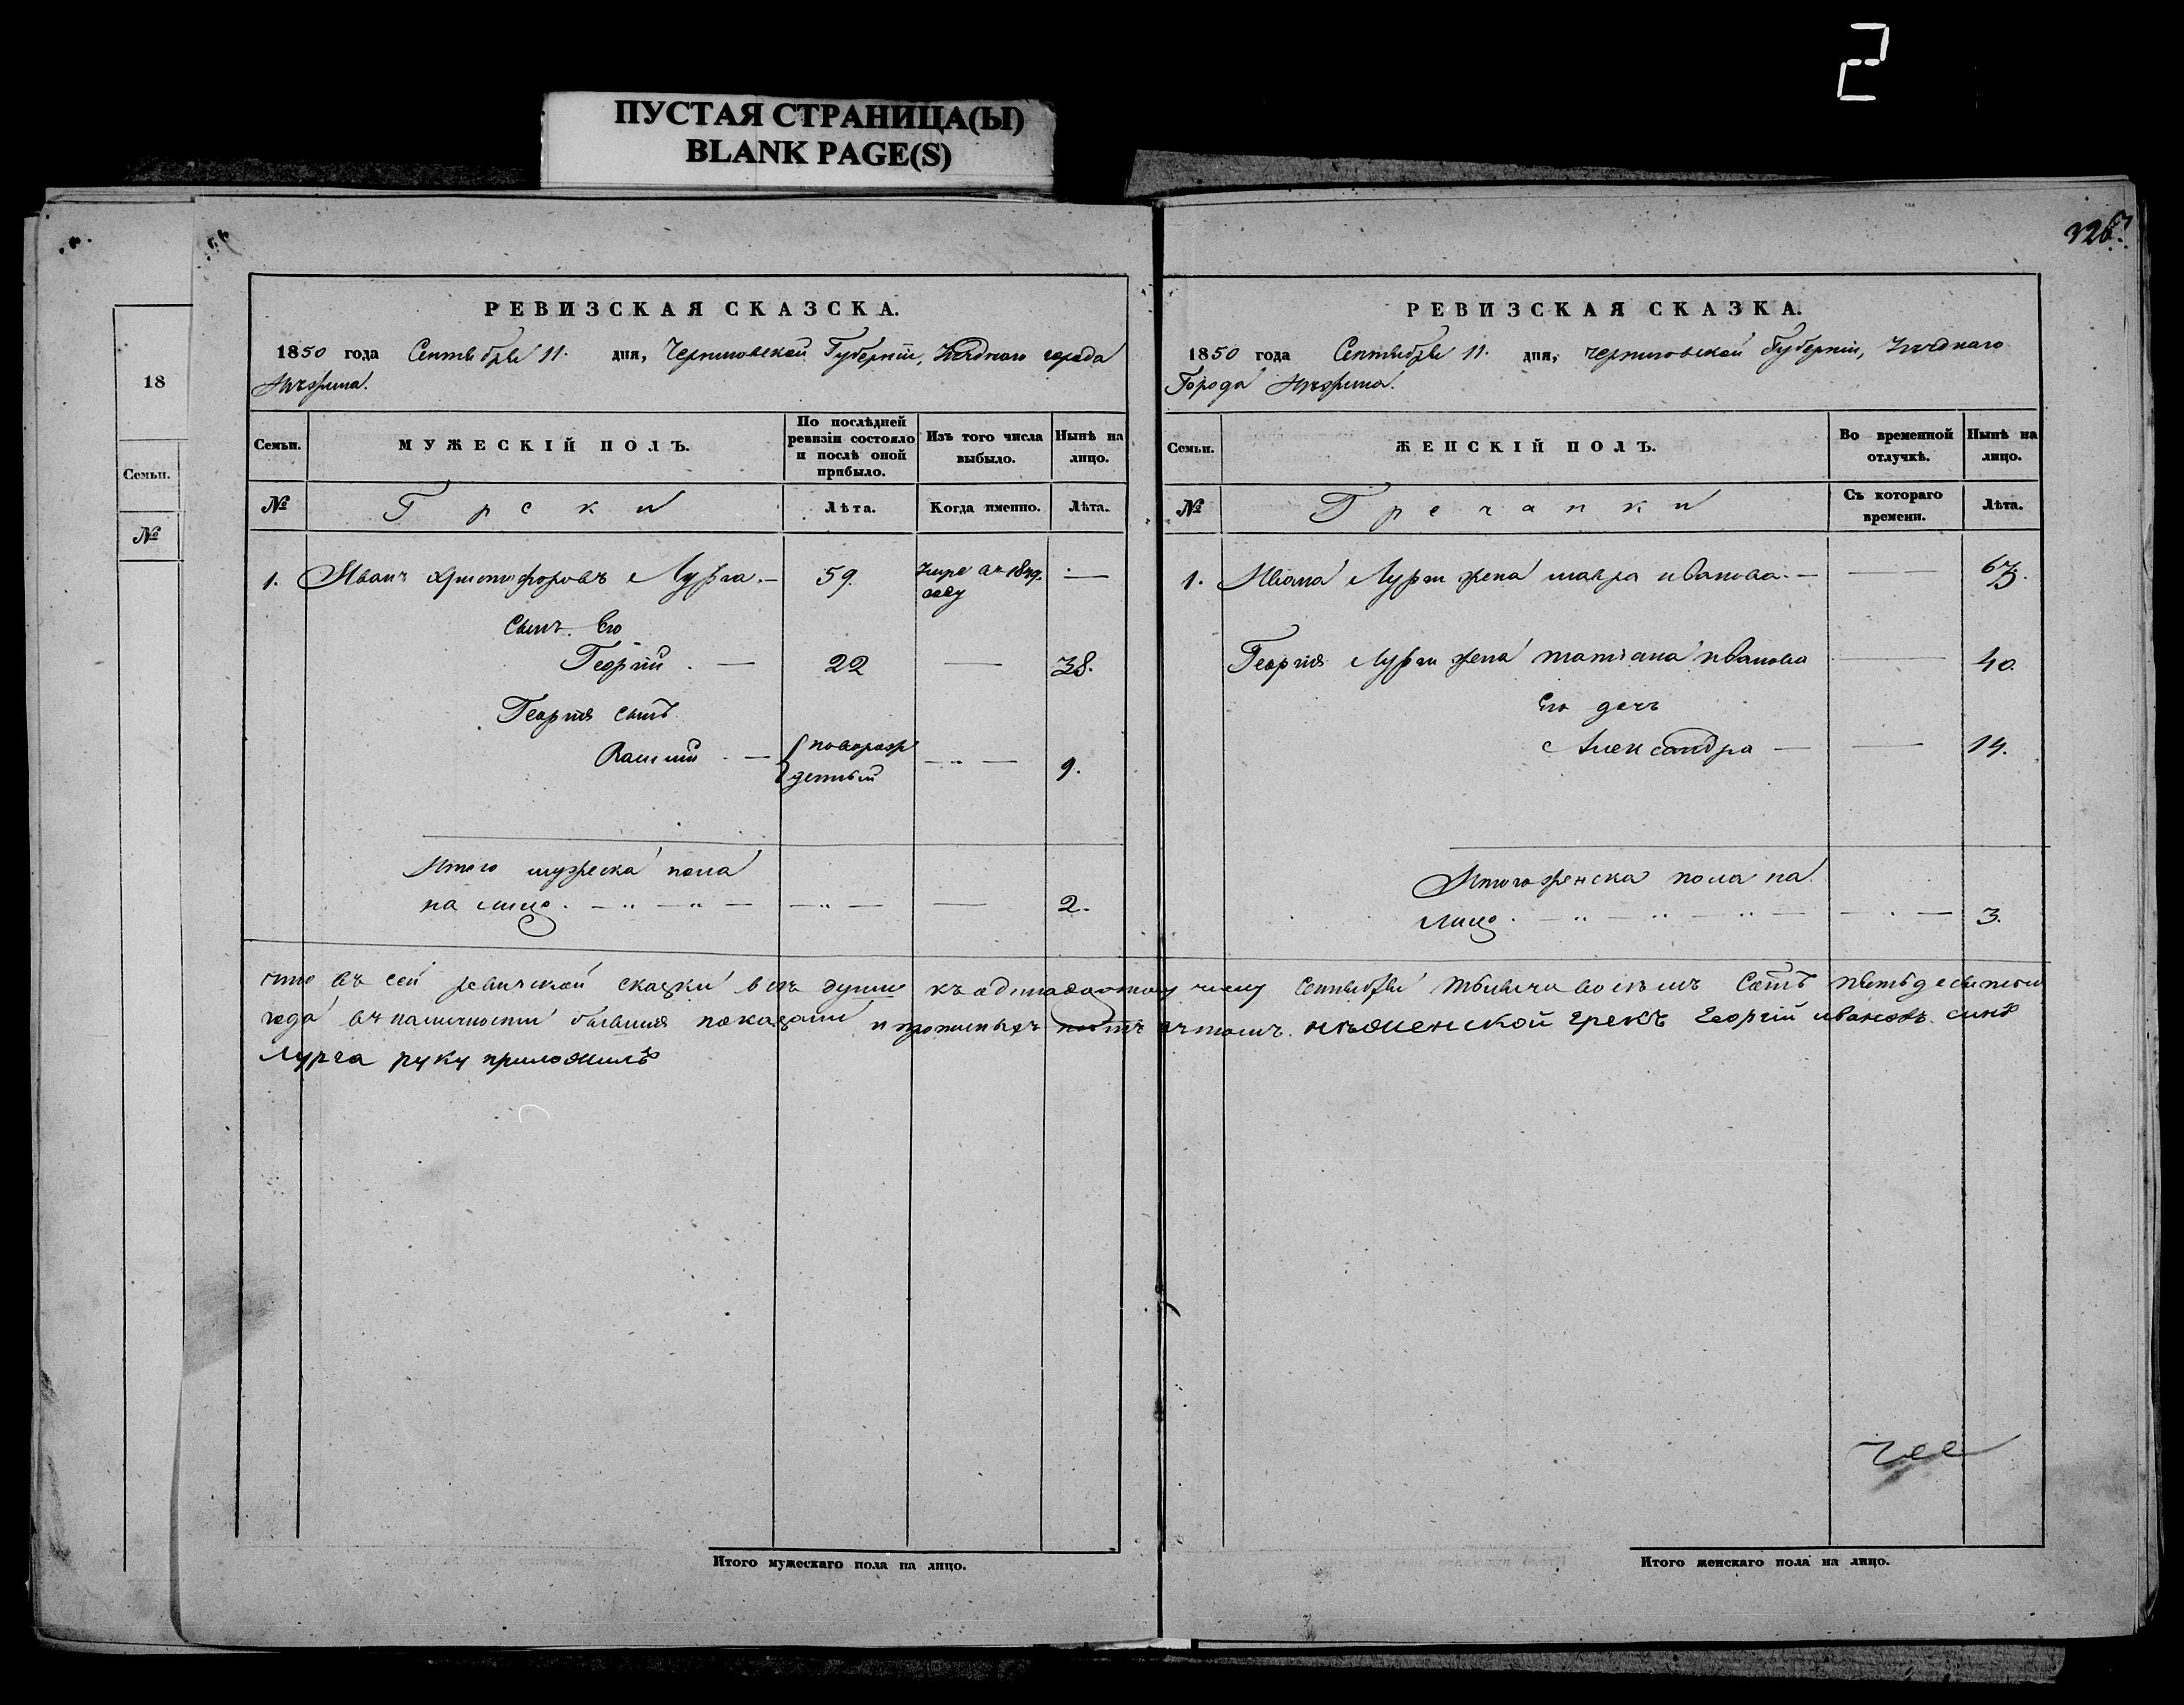 2
ПУСТАЯ СТРАНИЦА(Ы)
BLANK PAGE(S)
326.
18
Семьи.
№
РЕВИЗСКАЯ СКАЗСКА.
1850 года Сентября 11. дня, Черниговской Губерніи, Уѣзднаго города
Нѣжина.
Семьи.
МУЖЕСКІЙ ПОЛЪ.
По послѣдней
ревизіи состояло
и послѣ оной
прибыло.
Изъ того числа
выбыло.
Нынѣ на
лицо.
№
Греки
Лѣта.
Когда именно.
Лѣта.
1. Иванъ Христофоровъ Лурга.— 59. —
Сынъ Его
Георгій . — 22 — 38.
Георгія сынъ
— новорож
денный — " — 9.
Итого мужеска пола
на лицо. — " — " — — " — — 2.
Итого мужескаго пола на лицо.
РЕВИЗСКАЯ СКАЗКА.
1850 года Сентября 11. дня, Черниговской Губерніи, Уѣзднаго
Города Нѣжина.
Семьи.
ЖЕНСКІЙ ПОЛЪ.
Во временной
отлучкѣ.
Нынѣ на
лицо.
№
Гречанки
Съ котораго
времени.
Лѣта.
1. Ивана Лурги жена Мавра Иванова.— —
Георгія Лурги жена Татіана Иванова — 40.
Его дочь
Александра — — 14.
Итого женска пола на
лицо. — " — " — " — — " — 3.
что въ сей ревизской сказки всѣ души къ одинадцатому числу Сентября тысяча восемъ Сотъ пятьдесятого
года въ наличности бывшія показаны и прописныхъ нѣтъ въ томъ нѣженской грекъ Георгій Ивановъ синъ
Лурга руку приложилъ
Итого женскаго пола на лицо.